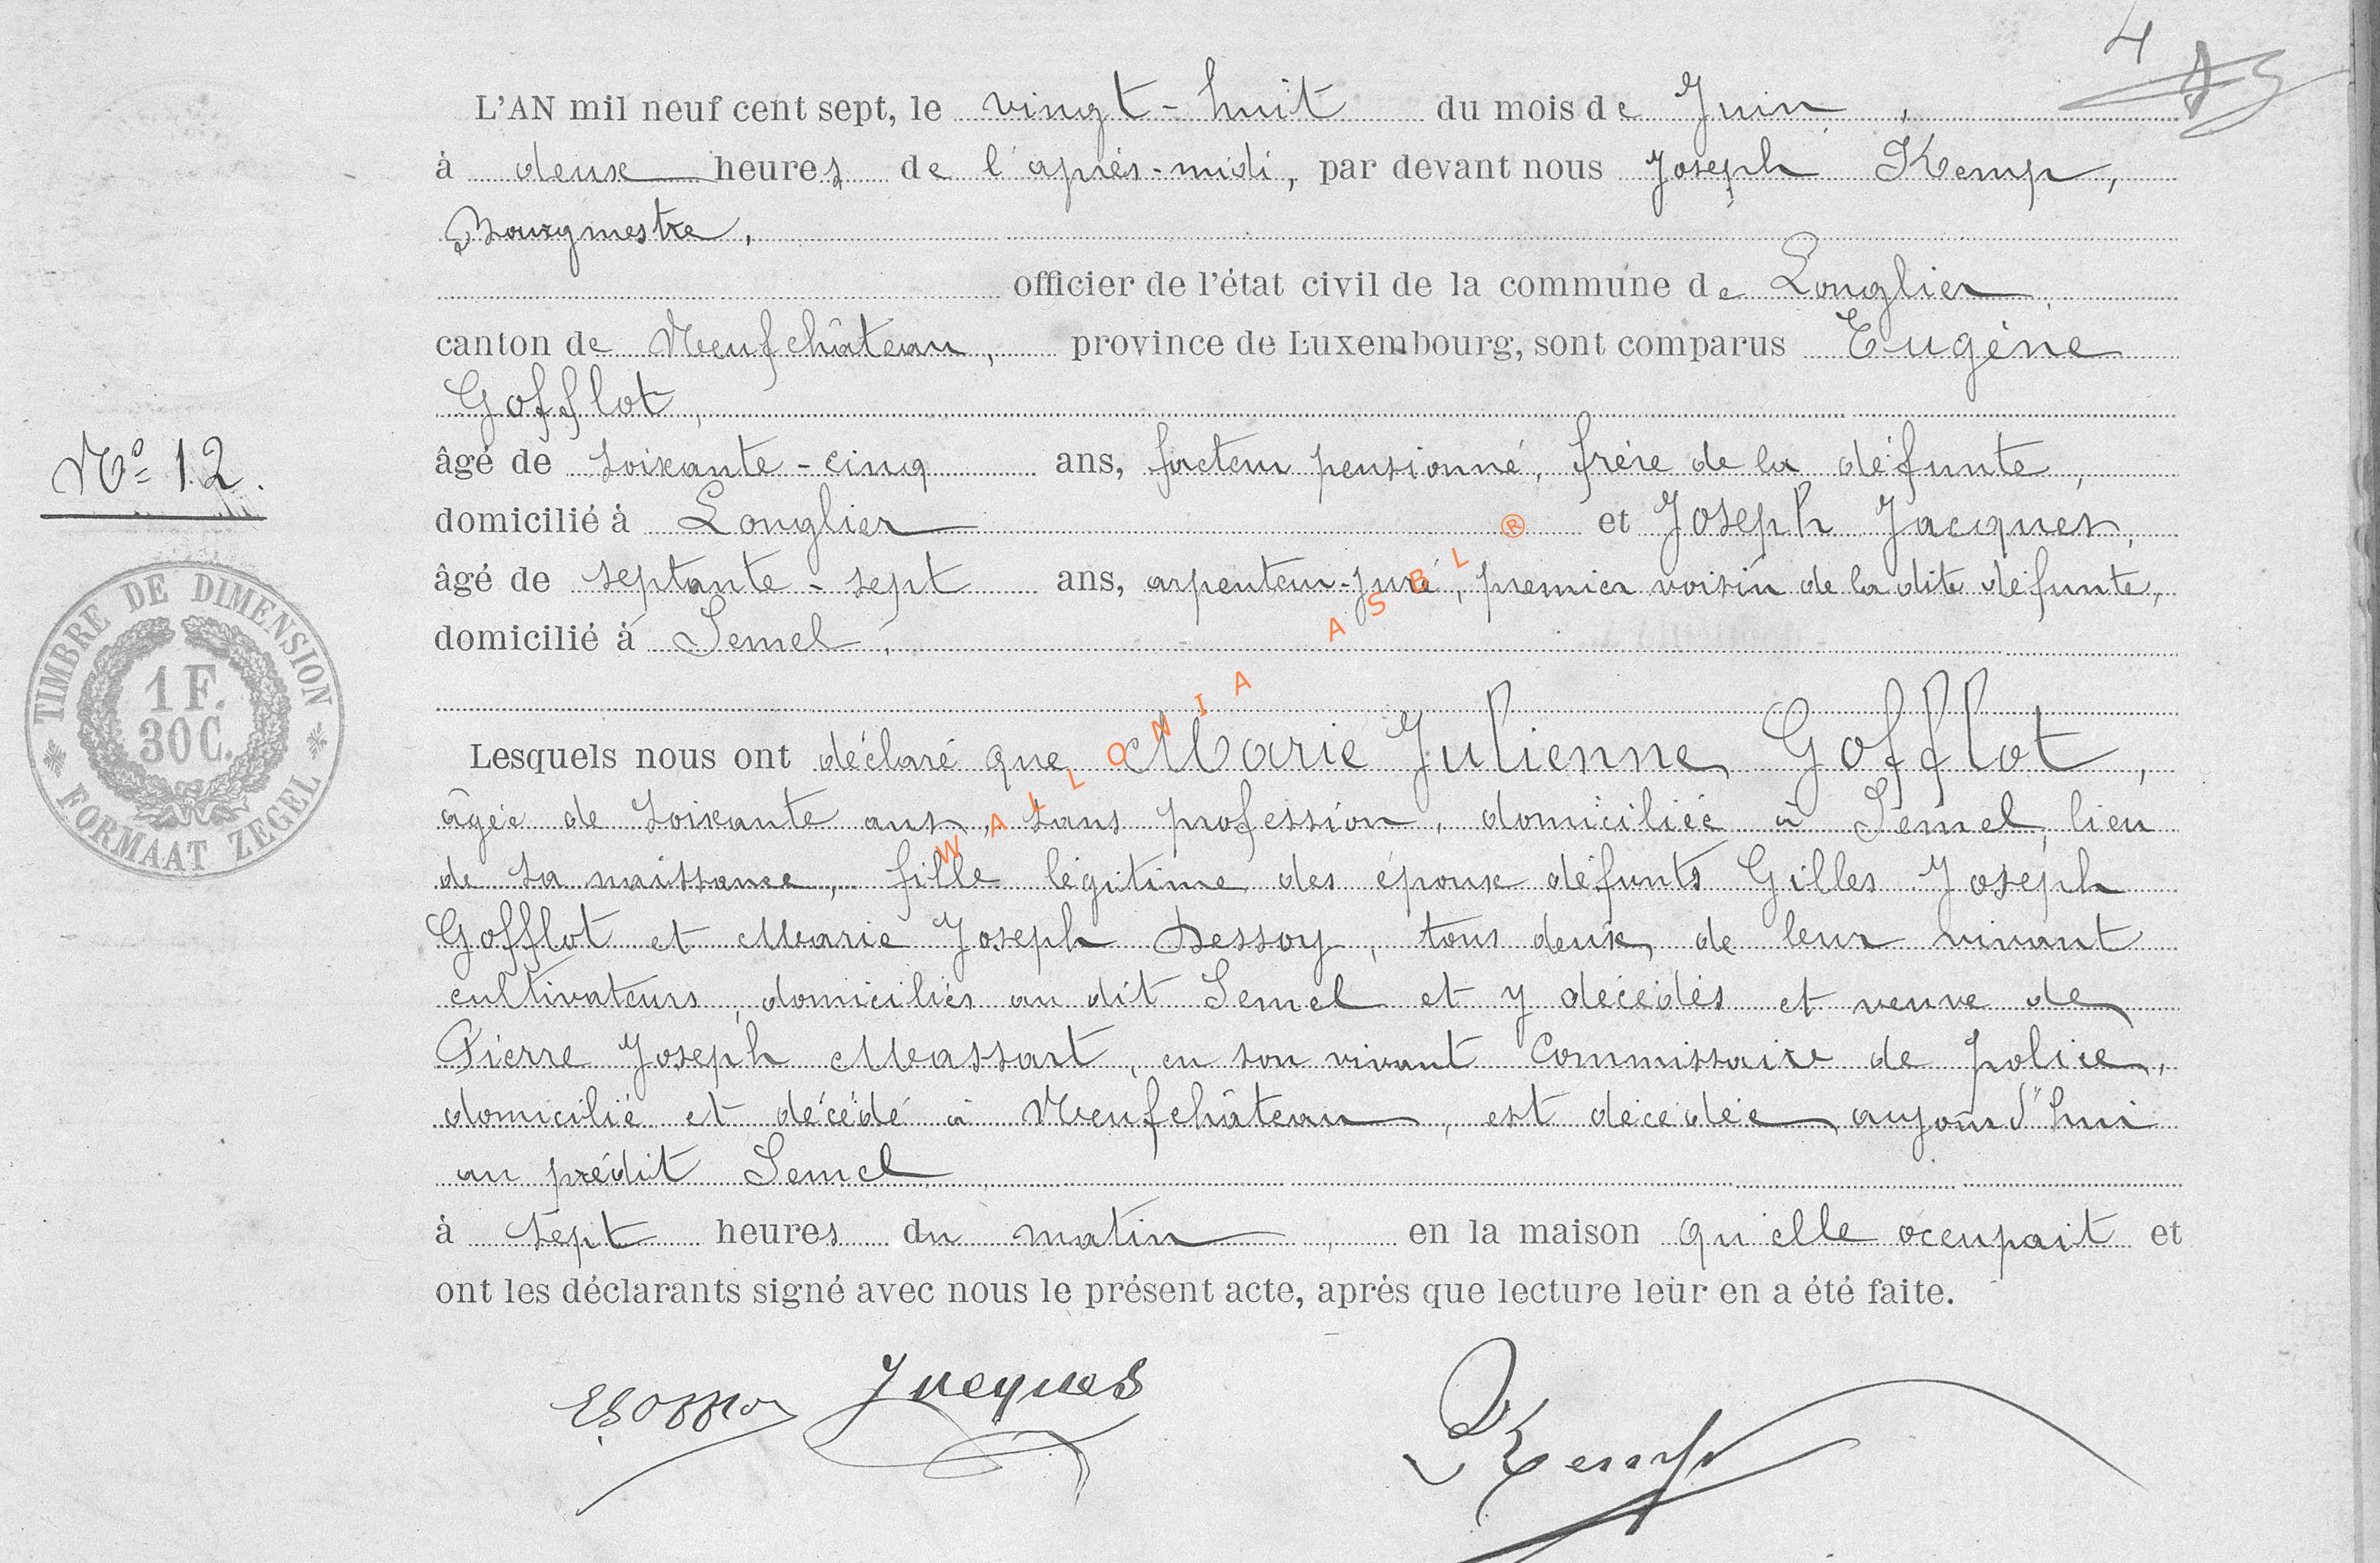 4
L'AN mil neuf cent sept, le vingt-huit du mois de Juin,
à deux heures de l'après-midi, par devant nous Joseph Kemp,
Bourgmestre,
officier de l'état civil de la commune de Longlier,
canton de Neufchâteau, province de Luxembourg, sont comparus Eugène
Gofflot,
âgé de soixante-cinq ans, facteur pensionné, frère de la défunte,
N° 12.
domicilié à Longlier et Joseph Jacques,
âgé de septante-sept ans, arpenteur-juré, premier voisin de la dite défunte,
domicilié à Semel,
TIMBRE DE DIMENSION
1 F.
30 C.
FORMAAT ZEGEL
WALLONIA ASBL ®
Lesquels nous ont déclaré que Marie Julienne Gofflot,
âgée de soixante ans, sans profession, domiciliée à Semel, lieu
de sa naissance, fille légitime des époux défunts Gilles Joseph
Gofflot et Marie Joseph Dessoy, tous deux, de leur vivant
cultivateurs, domiciliés au dit Semel et y décédés et veuve de
Pierre Joseph Massart, en son vivant Commissaire de police,
domicilié et décédé à Neufchâteau, est décédée aujourd'hui
au prédit Semel
à sept heures du matin, en la maison qu'elle occupait et
ont les déclarants signé avec nous le présent acte, après que lecture leur en a été faite.
Jacques
Kemp